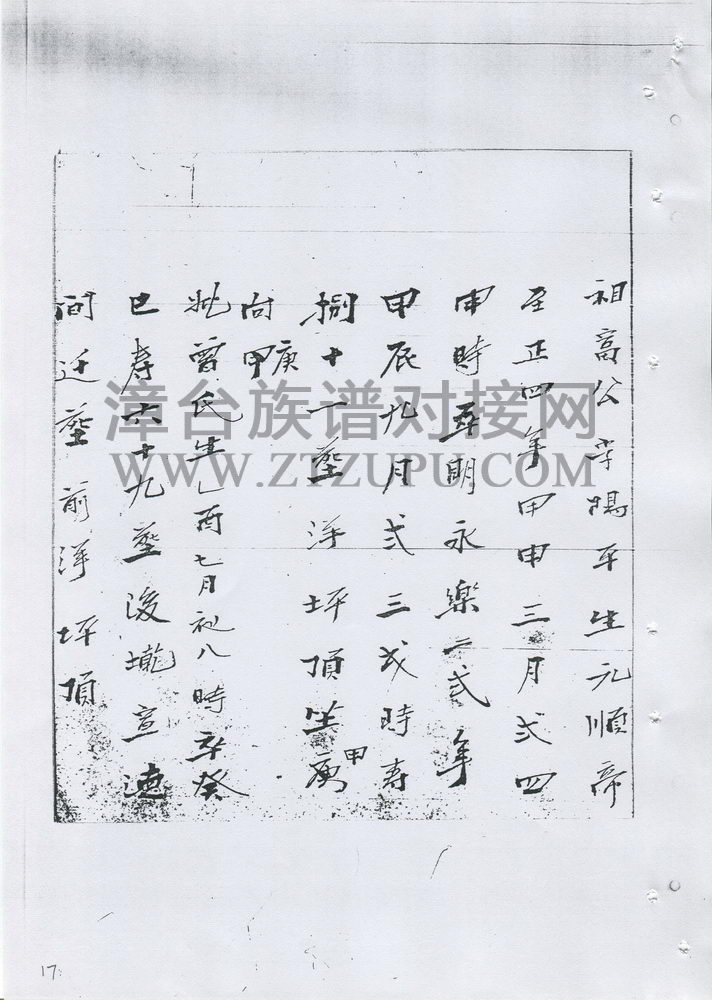 祖高公字陽平生元順帝
至正四年甲申三月弍四
申時卒明永樂二弍年
甲辰九月弍三戌時壽
捌十一葬洋坪頂坐
甲
庚
向甲
妣曾氏生乙酉七月初八時卒癸
巳寿六十九葬後壠宣德
间迁葬前洋坪頂
漳台族谱对接网
WWW.ZTZUPU.COM
17